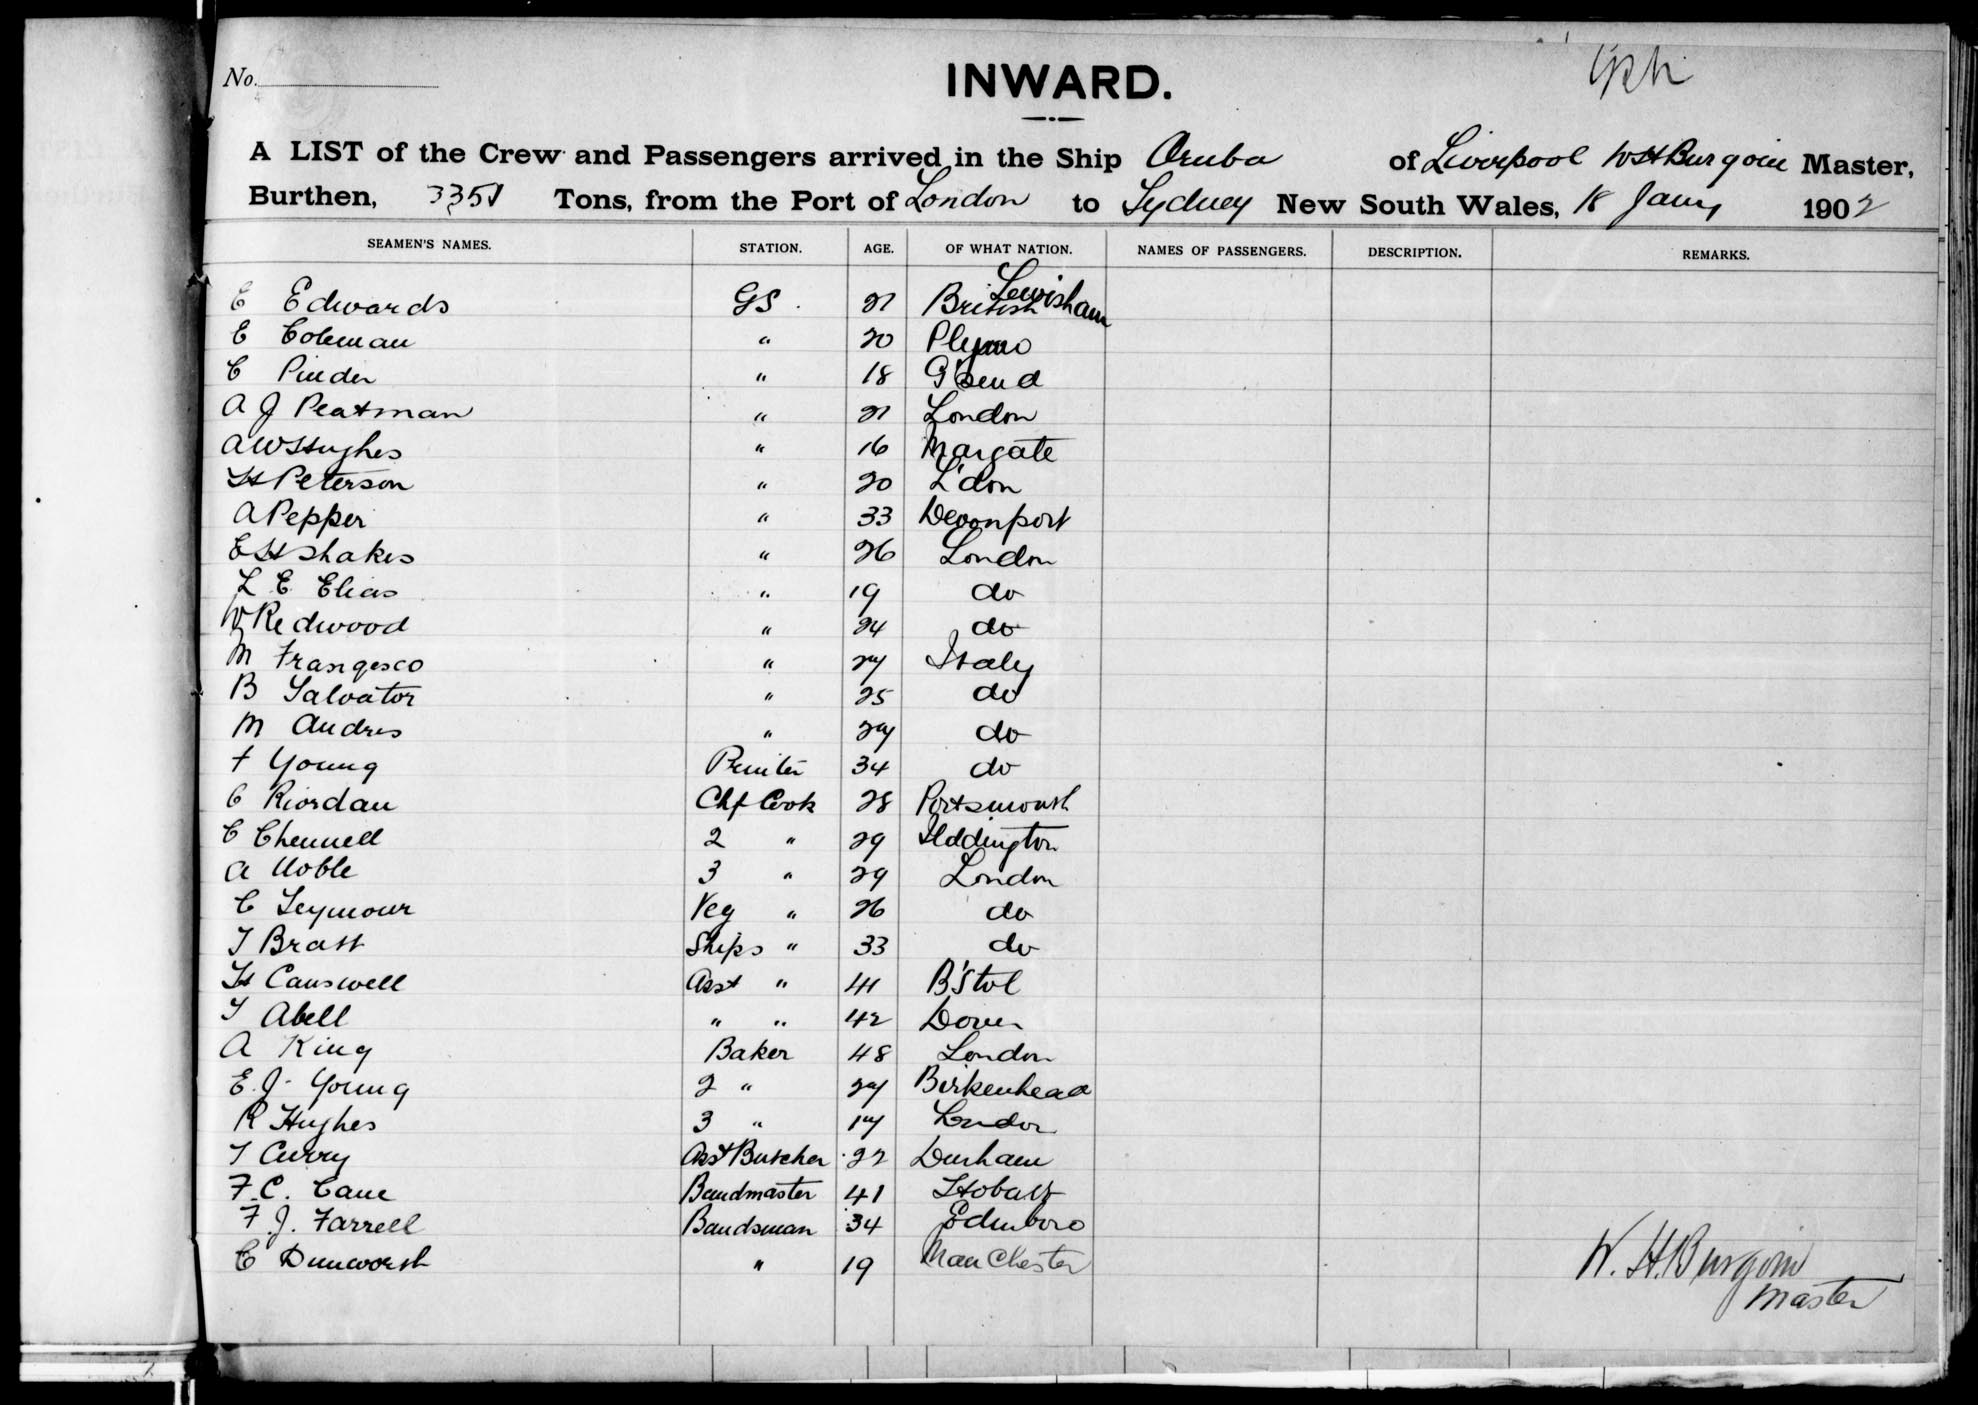 No.
INWARD.
A LIST of the Crew and Passengers arrived in the Ship Oruba of Liverpool W H Burgoin Master,
Burthen, 3351 Tons, from the Port of London to Sydney New South Wales, 18 Jany 1902
SEAMEN'S NAMES. STATION. AGE. OF WHAT NATION. NAMES OF PASSENGERS. DESCRIPTION. REMARKS.
E Edwards GS 21 British Lewisham
E Coleman " 20 Plymo
C Pinder " 18 G'send
A J Peatman " 21 London
A W Hughes " 16 Margate
H Peterson " 20 L'don
A Pepper " 33 Devonport
E H Shakes " 26 London
L E Elias " 19 do
W Redwood " 24 do
M Frangesco " 27 Italy
B Salvator " 25 do
M Andres " 27 do
F Young Printer 34 do
C Riordan Chf Cook 28 Portsmouth
C Chennell 2 " 29
A Noble 3 " 29 London
C Seymour Veg " 26 do
T Bratt Ships " 33 do
H Canswell Asst " 41 B'stol
T Abell " " 42 Dover
A King Baker 48 London
E. J. Young 2 " 27 Birkenhead
R Hughes 3 " 17 London
T Curry Asst Butcher 22 Durham
F. C. Cane Bandmaster 41 Hobart
F. J. Farrell Bandsman 34 Edinboro
C Dunworth " 19 Manchester
W. H. Burgoin
Master